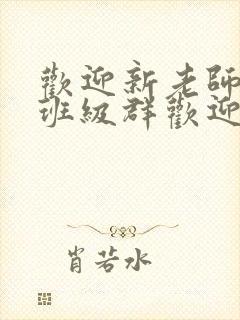 歡迎新老師
班級群歡迎
肖若水